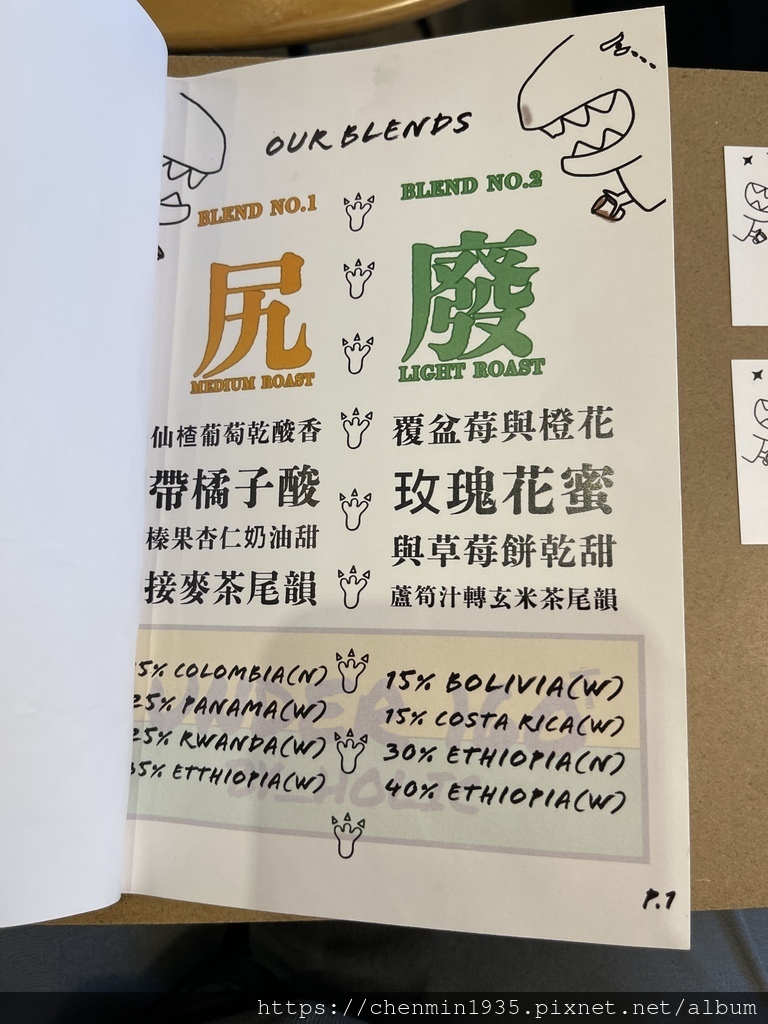 OUR BLENDS
BLEND NO.1
尻
MEDIUM ROAST
仙楂葡萄乾酸香
帶橘子酸
榛果杏仁奶油甜
接麥茶尾韻
5% COLOMBIA(N)
25% PANAMA(W)
25% RWANDA(W)
35% ETTHIOPIA(W)
BLEND NO.2
廢
LIGHT ROAST
覆盆莓與橙花
玫瑰花蜜
與草莓餅乾甜
蘆筍汁轉玄米茶尾韻
15% BOLIVIA(W)
15% COSTA RICA(W)
30% ETHIOPIA(N)
40% ETHIOPIA(W)
P.1
https://chenmin1935.pixnet.net/album